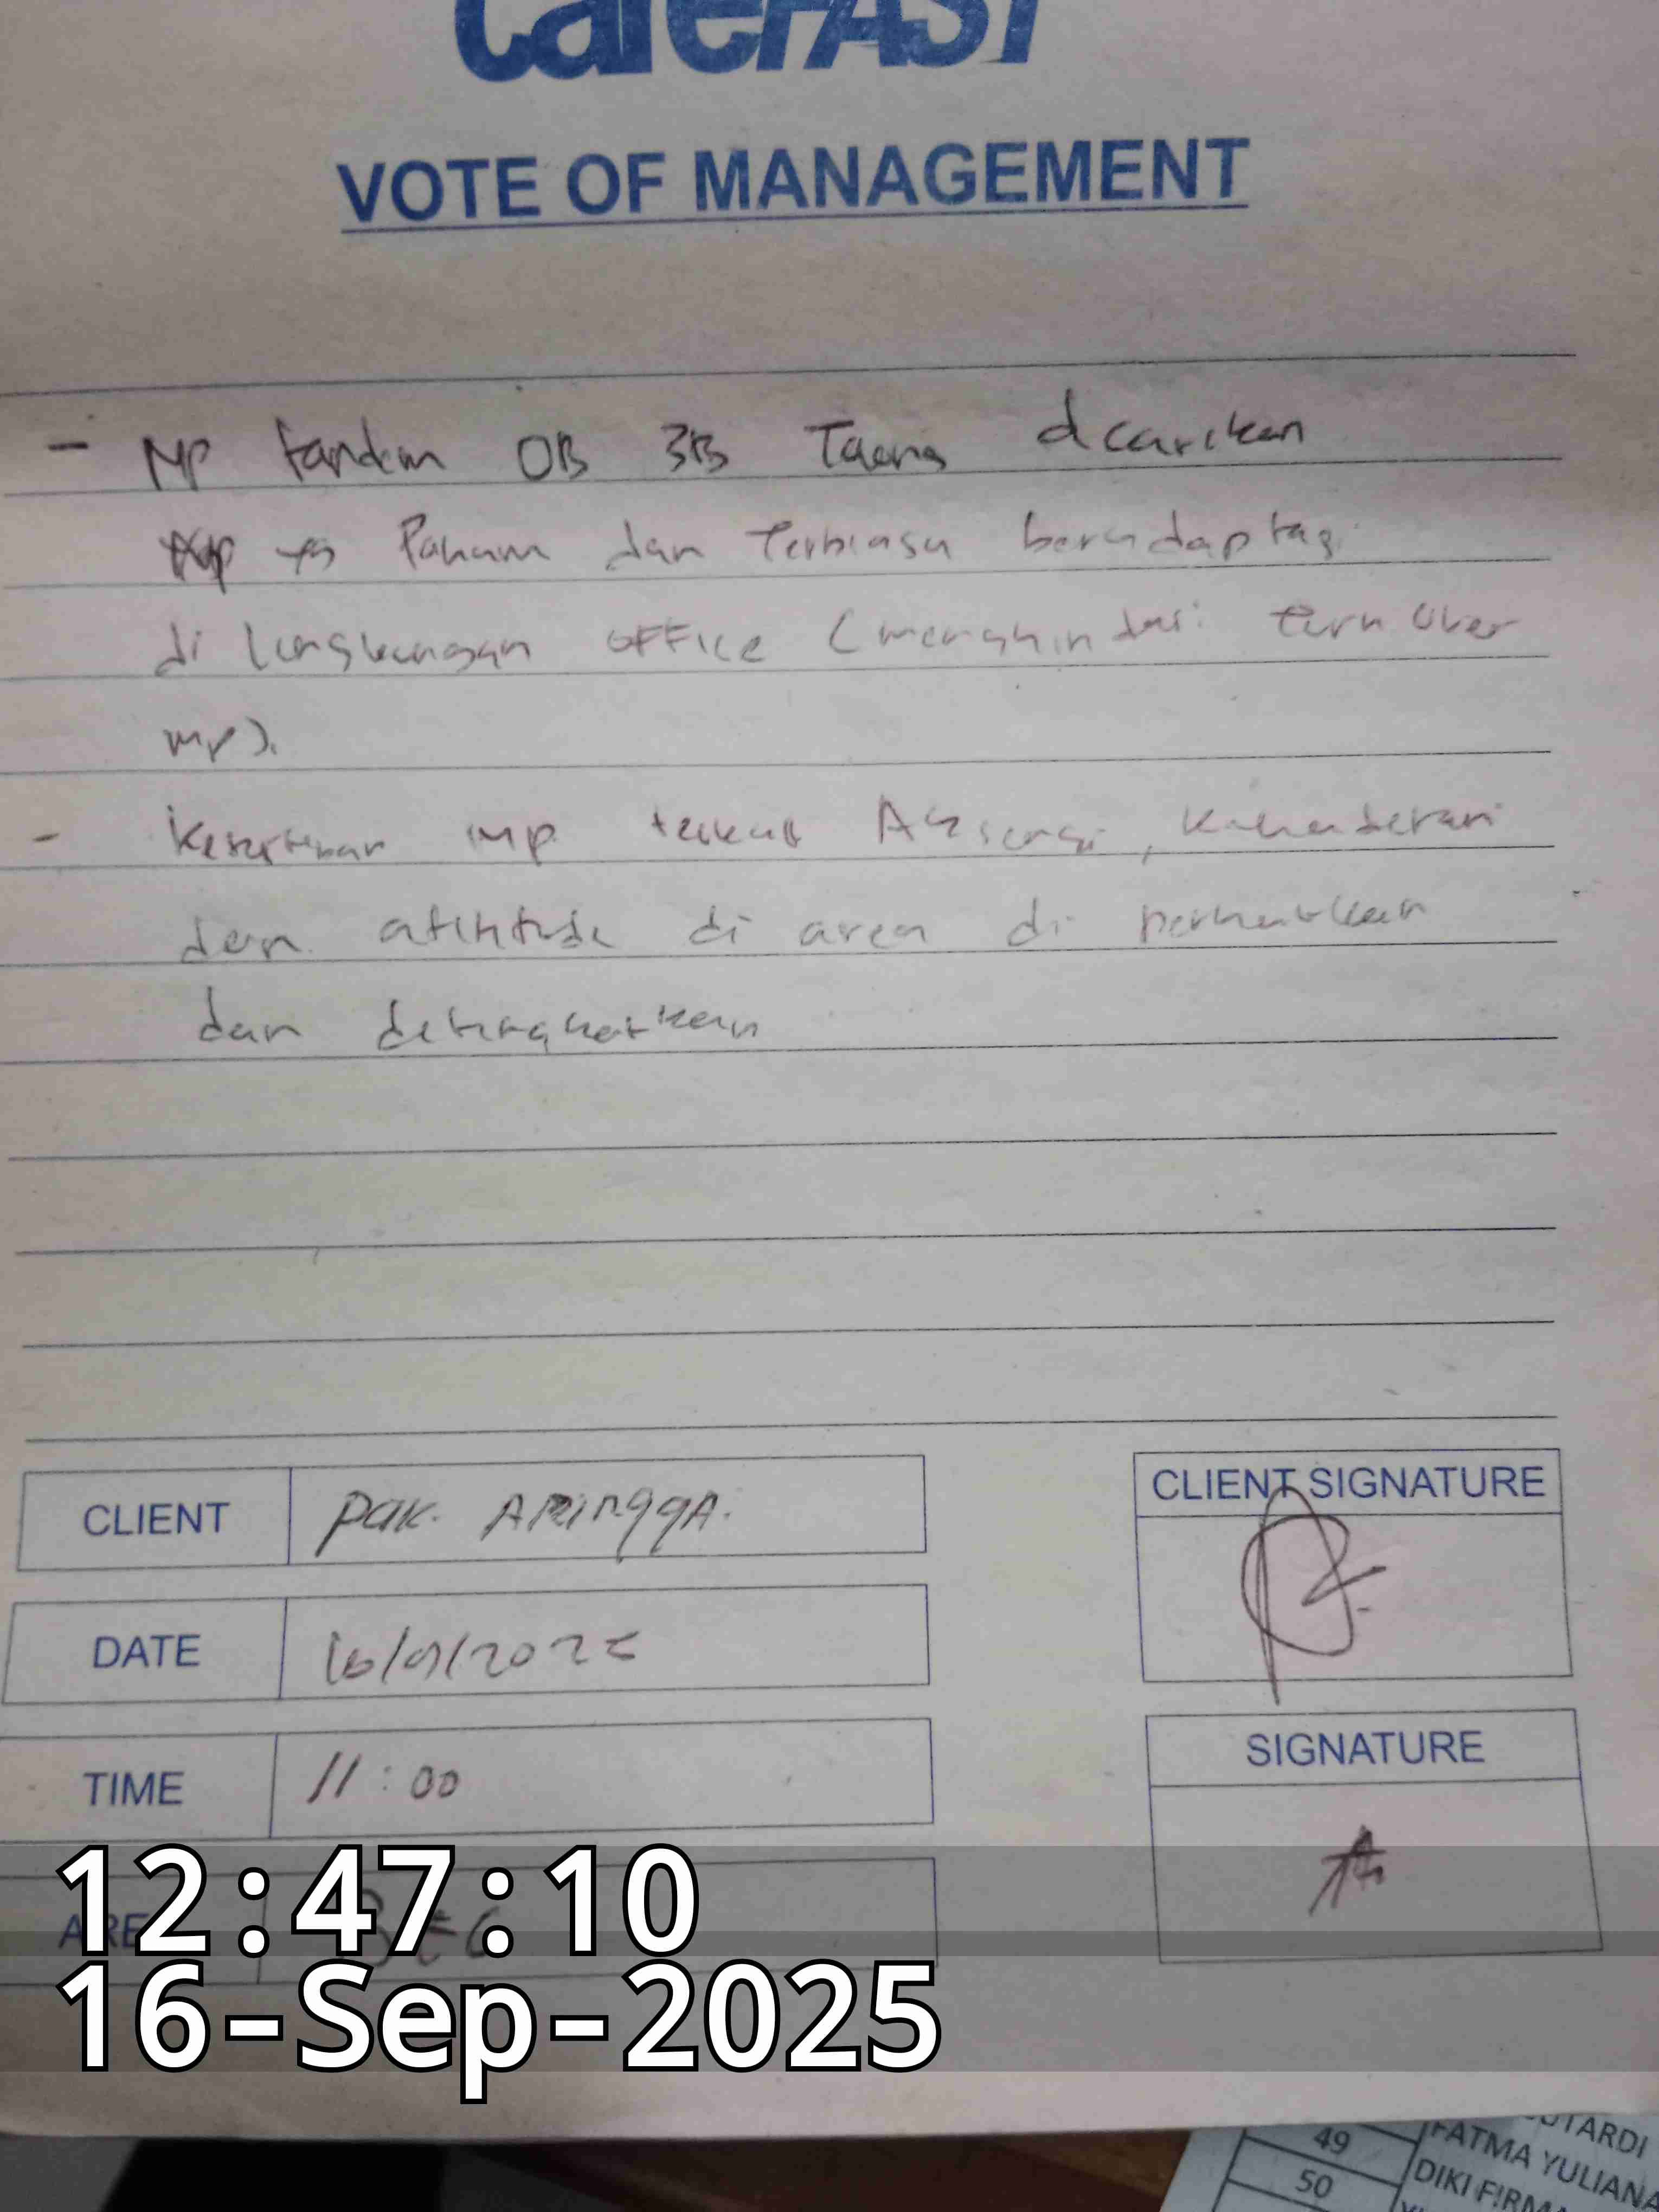 careFAST
VOTE OF MANAGEMENT
- MP tandem OB 3B dicarikan
yg Paham dan Terbiasa beradaptasi
di lingkungan OFFICE (menghindari turn over
mp).
- mp terkait Absensi, Kehadiran
dan attitude di area di perhatikan
dan ditingkatkan
CLIENT PAK. ARINGGA.
CLIENT SIGNATURE
DATE 16/9/2025
TIME 11:00
SIGNATURE
12:47:10
16-Sep-2025
49 FATMA YULIANA
50